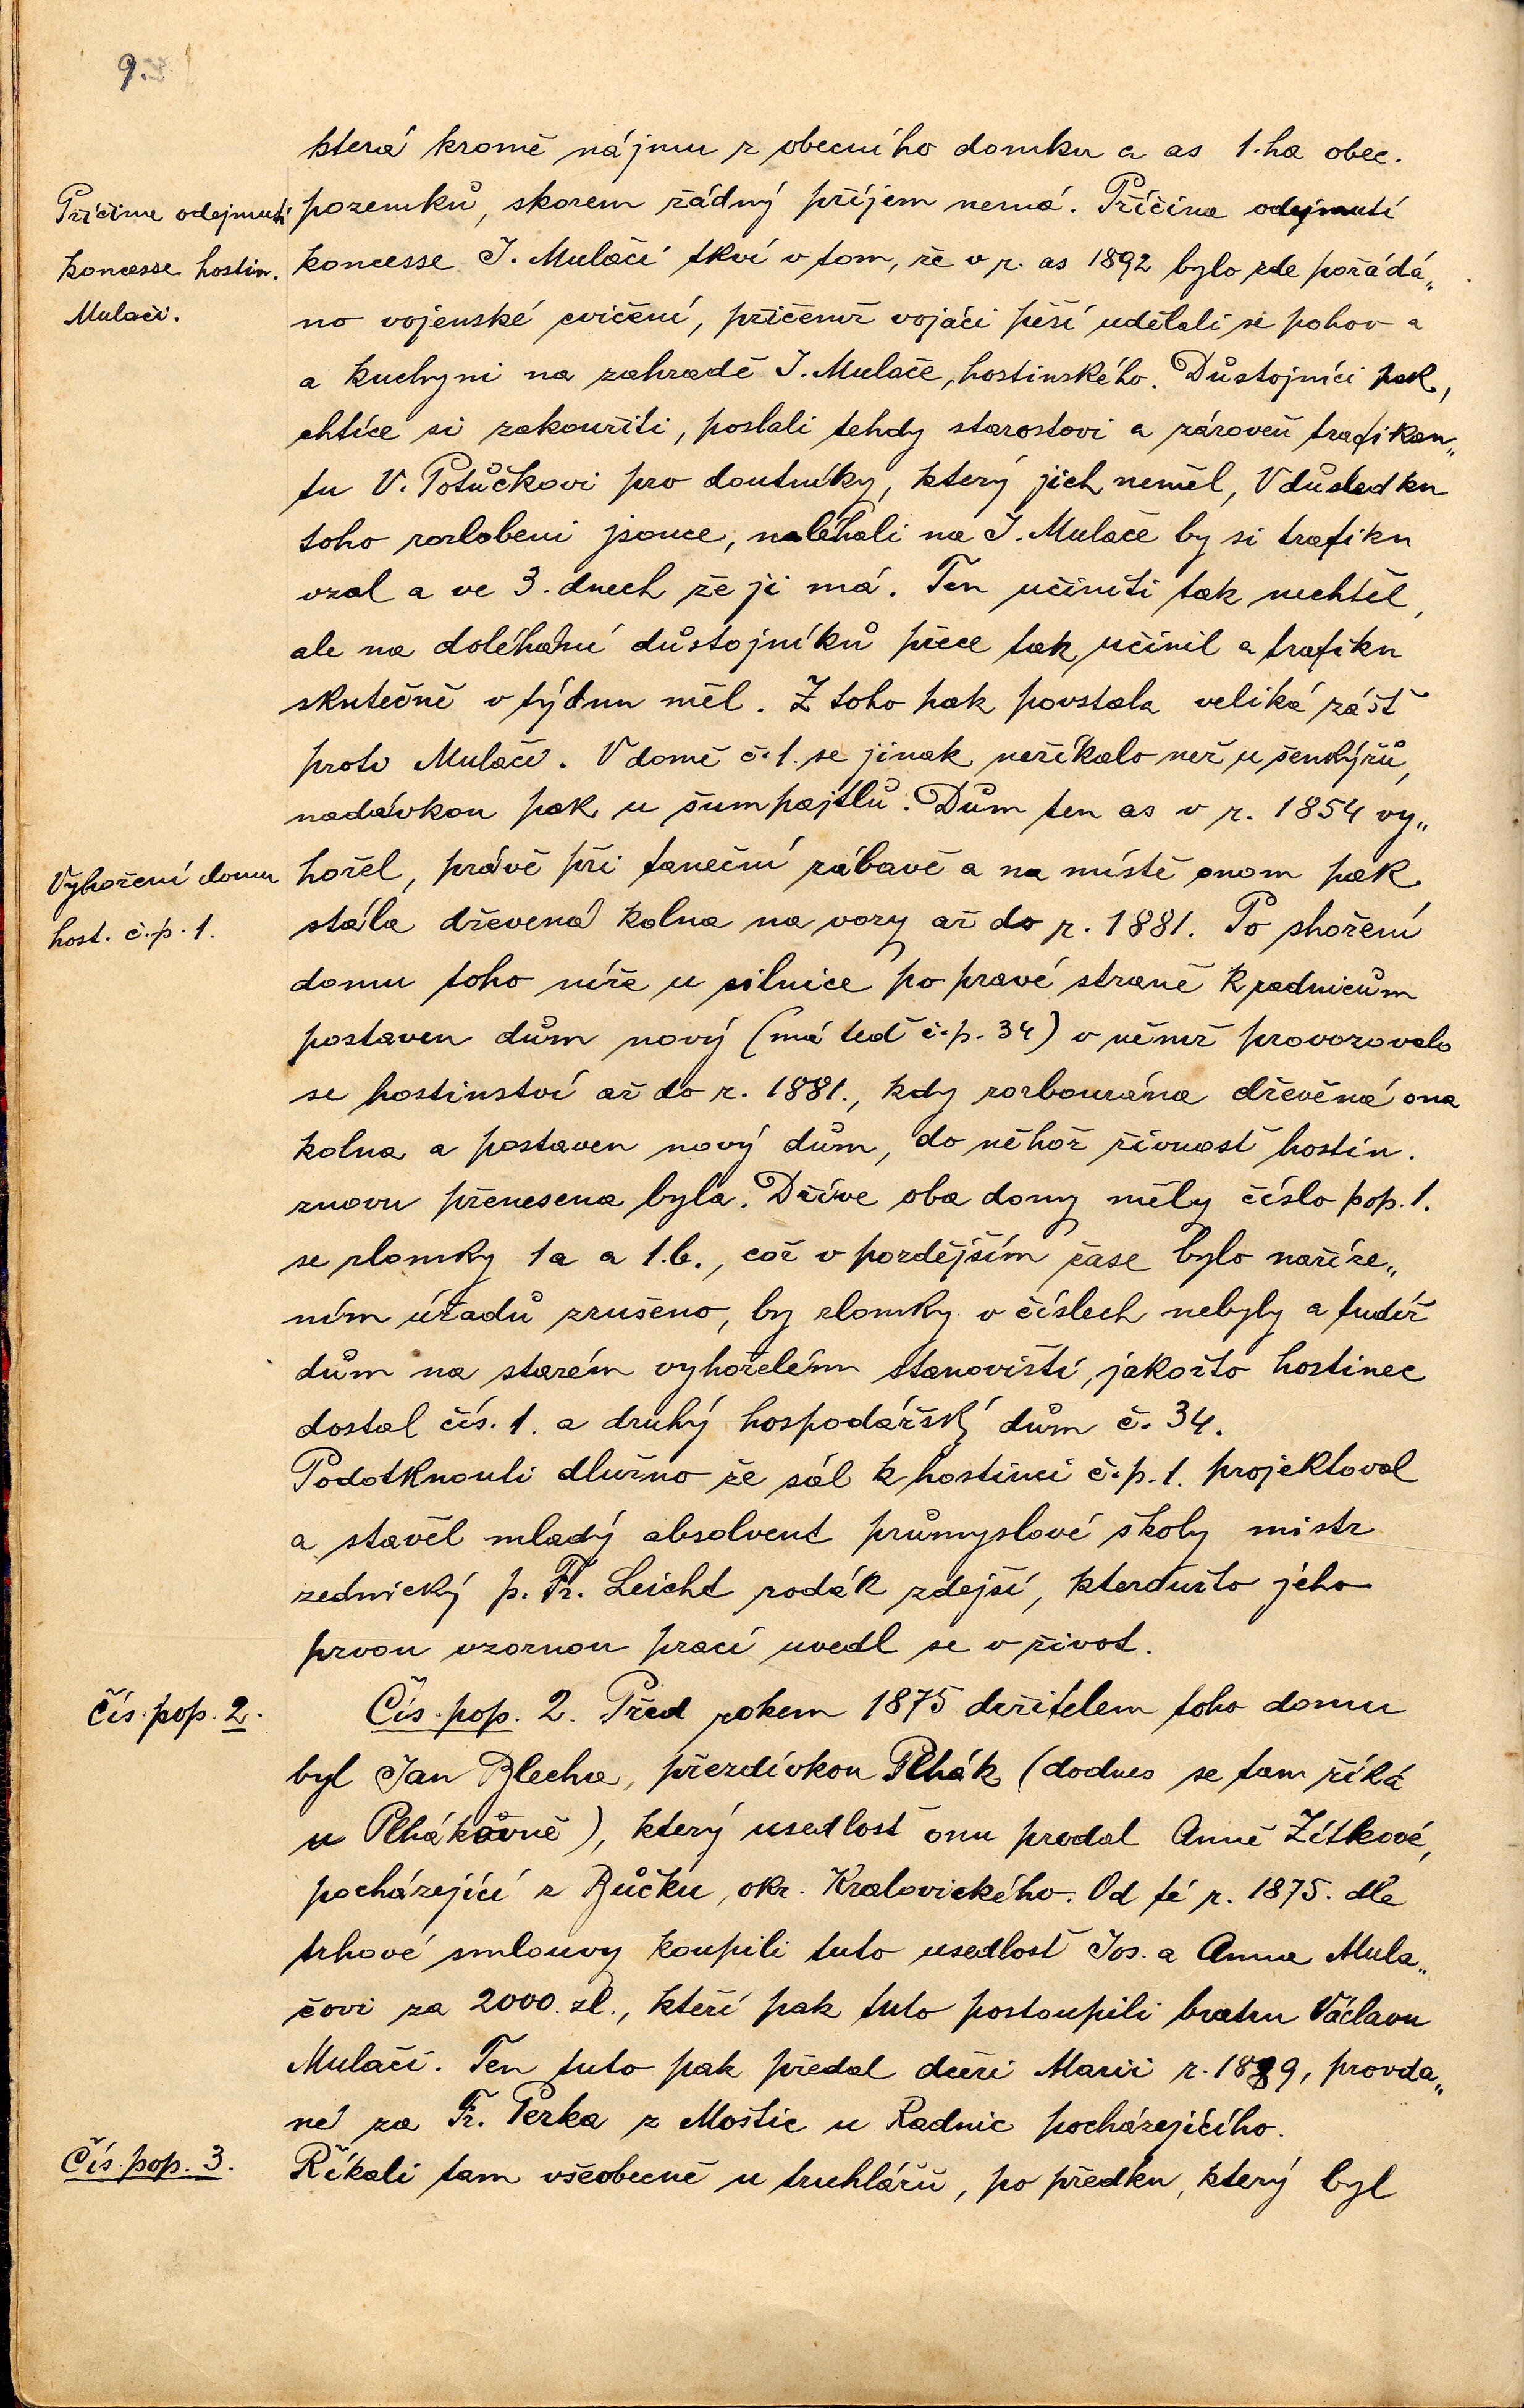 9.
která kromě nájmu z obecního domku a as 1.ha obec.
Příčina odejmutí
pozemků, skorem žádný příjem nemá. Příčina odejmutí
koncesse hostin.
koncesse J. Mulačí tkví v tom, že v r. as 1892 bylo zde pořádá„
Mulači.
no vojenské cvičení, přičemž vojáci pěší udělali si pohov a
a kuchyni na zahradě J. Mulače, hostinského. Důstojníci pak,
chtíce si zakouřiti, poslali tehdy starostovi a zároveň trafikan„
tu V. Potůčkovi pro doutníky, který jich neměl, V důsledku
toho rozlobeni jsouce, naléhali na J. Mulače by si trafiku
vzal a ve 3. dnech že ji má. Ten učiniti tak nechtěl,
ale na doléhání důstojníků přece tak učinil a trafiku
skutečně v týdnu měl. Z toho pak povstala veliká zášť
proti Mulači. V domě č.1. se jinak neříkalo než u šenkýřů,
nadávkou pak u šumpajtlů. Dům ten as v r. 1854 vy„
Vyhoření domu
hořel, právě při taneční zábavě a na místě onom pak
host. č.p. 1.
stála dřevená kolna na vozy až do r. 1881. Po shoření
domu toho níže u silnice po pravé straně k radnicům
postaven dům nový (má teď č.p. 34) v němž provozovalo
se hostinství až do r. 1881., kdy rozbourána dřevěná ona
kolna a postaven nový dům, do něhož živnost hostin.
znovu přenesena byla. Dříve oba domy měly číslo pop. 1.
se zlomky 1a a 1.b., což v pozdějším čase bylo naříze„
ním úřadů zrušeno, by zlomky v číslech nebyly a tudíž
dům na starém vyhořelém stanovišti, jakožto hostinec
dostal čís. 1. a druhý hospodářský dům č. 34.
Podotknouti dlužno že sál k hostinci č.p. 1. projektoval
a stavěl mladý absolvent průmyslové školy mistr
zednický p. Fr. Leicht rodák zdejší, kteroužto jeho
prvou vzornou prací uvedl se v život.
Čís. pop. 2.
Čís. pop. 2. Před rokem 1875 držitelem toho domu
byl Jan Blecha, přezdívkou Plhák (dodnes se tam říká
u Plhákovně), který usedlost onu prodal Anně Zítkové,
pocházející z Bůčku, okr. Kralovického. Od té r. 1875. dle
trhové smlouvy koupili tuto usedlost Jos. a Anna Mula„
čovi za 2000 zl., kteří pak tuto postoupili bratru Václavu
Mulačí. Ten tuto pak předal dceři Marii r. 1889, provda„
né za Fr. Perka z Moštic u Radnic pocházejícího.
Čís. pop. 3.
Říkali tam všeobecně u truhlářů, po předku, který byl